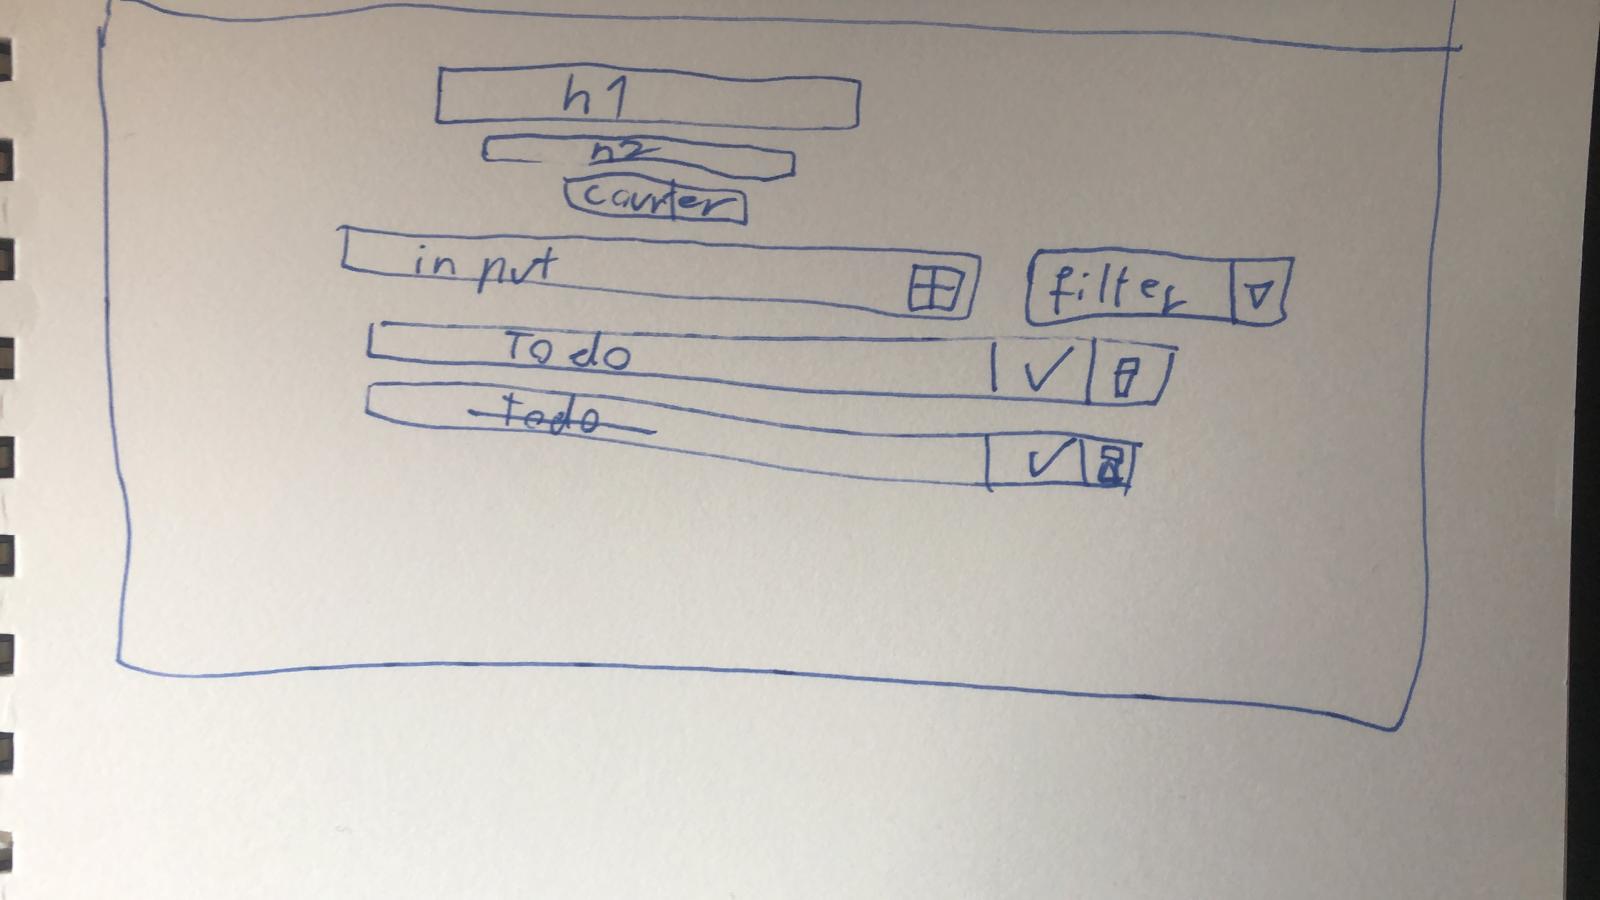 h1
h2
counter
input
filter
Todo
todo